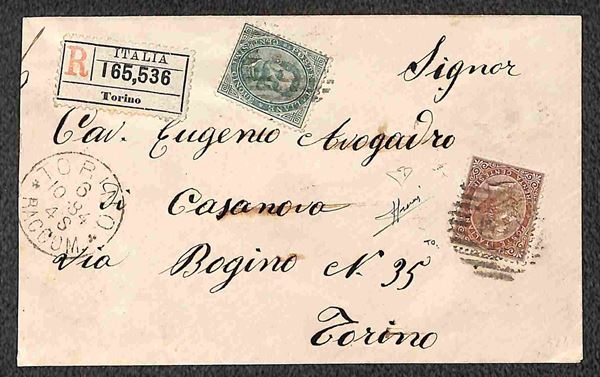 R
ITALIA
165,536
Torino
Signor
Cav. Eugenio Avogadro
di Casanova
Via Bogino N. 35
Torino
TORINO
6
10 84
4 S
* RACCOM. *
TO.